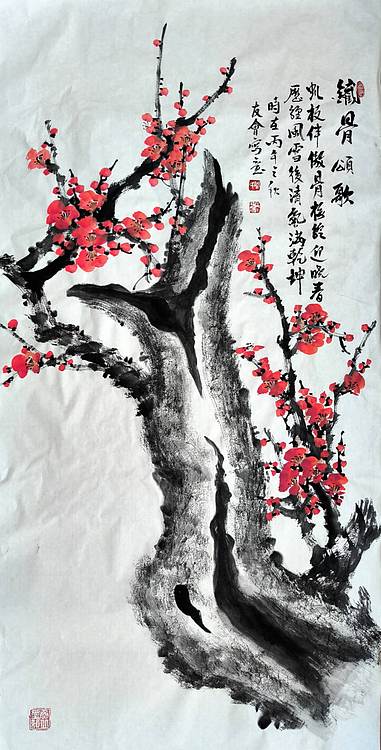 鐵骨頌歌
虬枝伴傲骨迎春
歷經風雪後清氣滿乾坤
時在丙午之秋
友會寫意